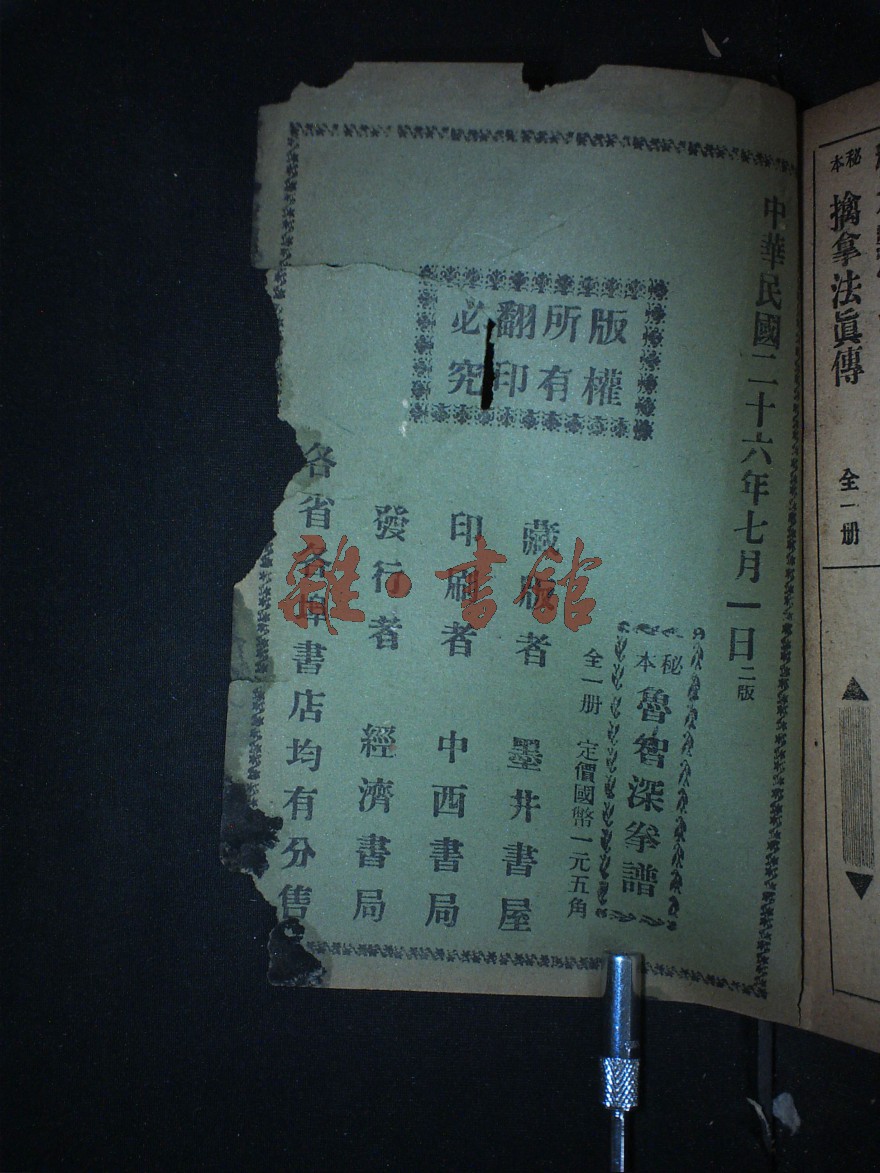 中華民國二十六年七月一日二版
版權
所有
翻印
必究
秘本 魯智深拳譜
全一册 定價國幣一元五角
藏版者 墨井書屋
印刷者 中西書局
發行者 經濟書局
各省各埠書店均有分售
雜·書館
秘本 擒拿法眞傳 全一册